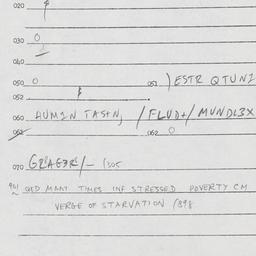 020
030 O
040
050 O 051 ) ESTR QTUNZ
052
060 HUMIN TASTN, / FLUD+/ MUNDL3X
062 O
070 GRAGER/- 1305
961 QED MANY TIMES INF STRESSED POVERTY CM
VERGE OF STARVATION /898